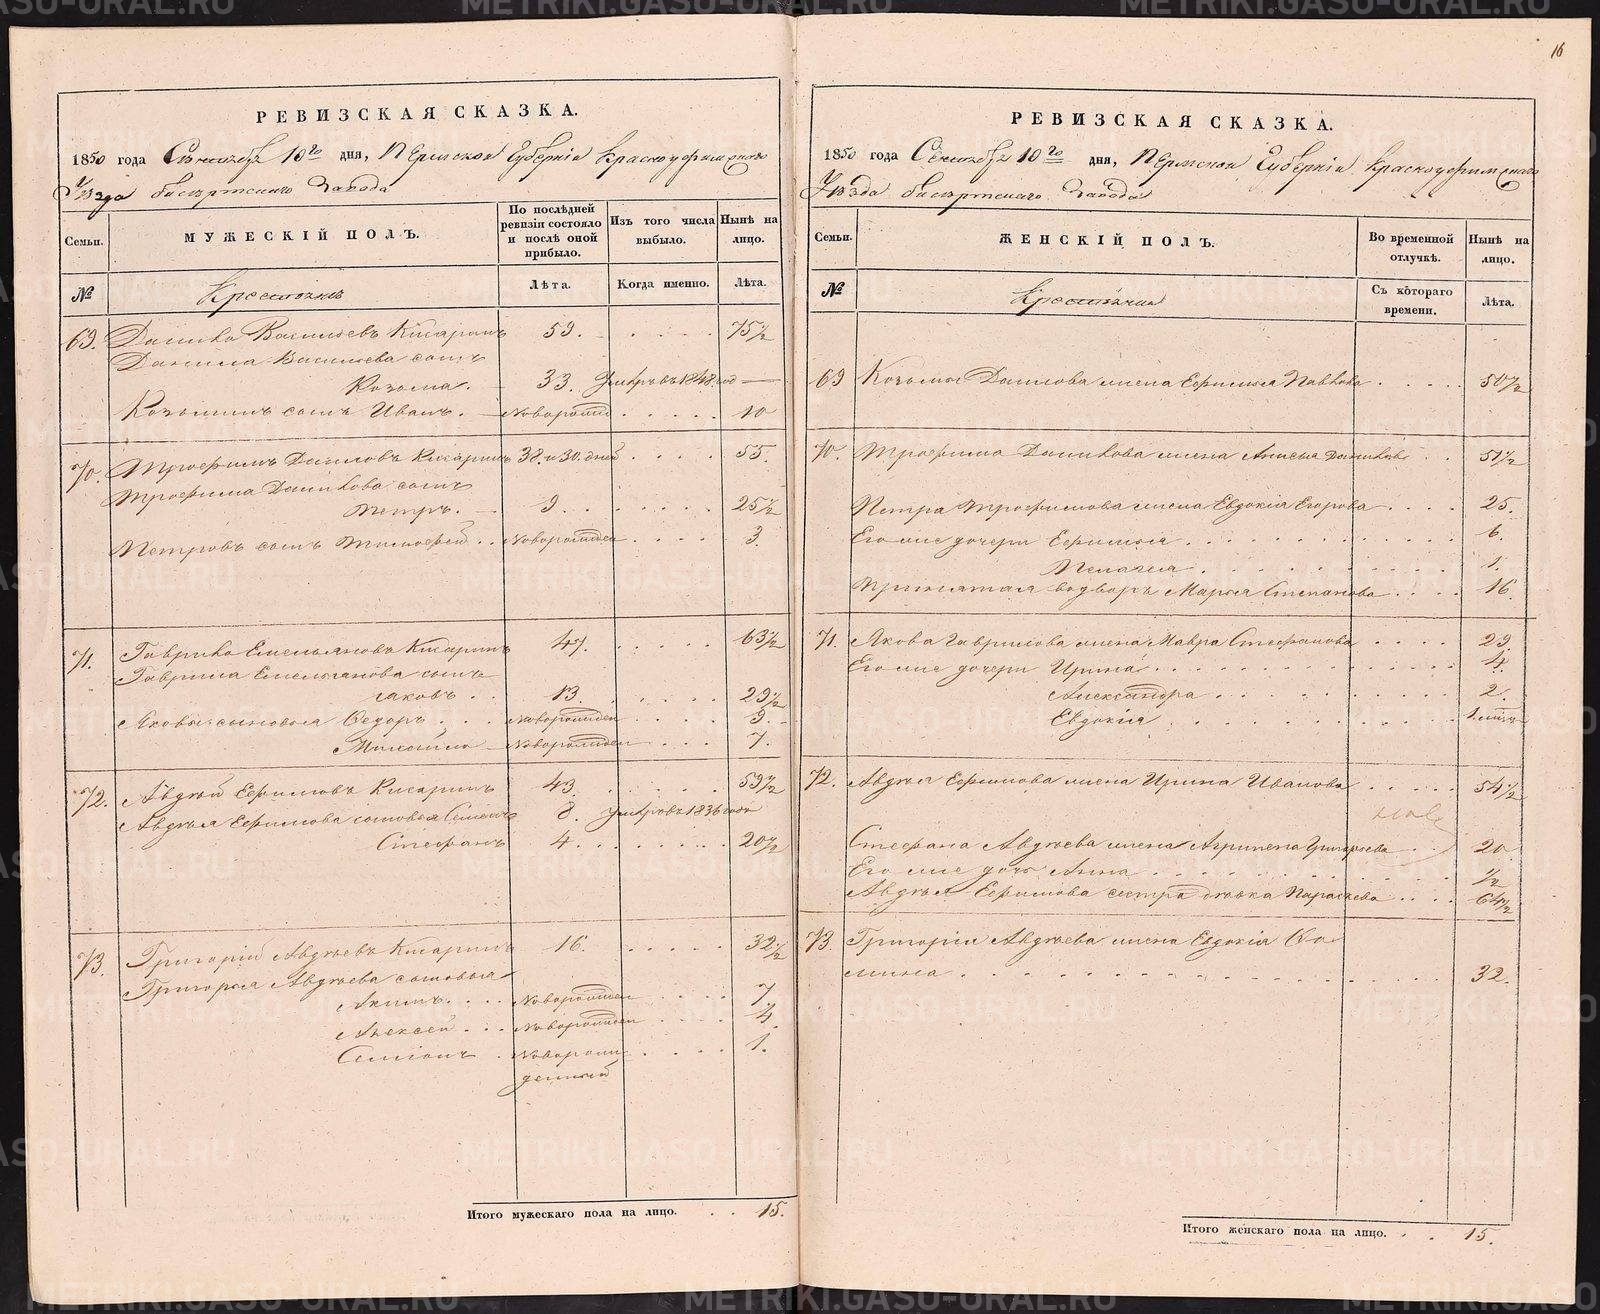 16
РЕВИЗСКАЯ СКАЗКА.
1850 года Сентября 10го дня, Пермской Губерніи Красноуфимскаго
Уѣзда Бисертскаго Завода
Семьи.
МУЖЕСКІЙ ПОЛЪ.
По послѣдней ревизіи состояло и послѣ оной прибыло.
Изъ того числа выбыло.
Нынѣ на лицо.
№
Крестьянъ
Лѣта.
Когда именно.
Лѣта.
69. Данило Васильевъ Кисаринъ 59. 75 1/2
Данила Васильева сынъ
Козьма. 33. Умеръ въ 1848 год
Козьминъ сынъ Иванъ. Новорожд 10
70. Трофимъ Даниловъ Кисаринъ 38. и 30. дней 55.
Трофима Данилова сынъ
Петръ. 9. 25 1/2
Петровъ сынъ Тимофей Новорожден 3.
71. Гаврило Емельяновъ Кисаринъ 47. 63 1/2
Гаврила Емельянова сынъ
Іаковъ 13 29 1/2
Якова сыновья Федоръ Новорожден 9.
Михайло Новорожден 7.
72. Авдѣй Ефимовъ Кисаринъ 43. 59 1/2
Авдѣя Ефимова сыновья Семенъ 8. Умеръ въ 1836 году
Стефанъ 4. 20 1/2
73. Григорій Авдѣевъ Кисаринъ 16. 32 1/2
Григорья Авдѣева сыновья
Акимъ. Новорожден 7
Алексей Новорожден 4.
Семіонъ Новорож-
денный 1.
Итого мужескаго пола на лицо. 15.
РЕВИЗСКАЯ СКАЗКА.
1850 года Сентября 10го дня, Пермской Губерніи Красноуфимскаго
Уѣзда Бисертскаго Завода
Семьи.
ЖЕНСКІЙ ПОЛЪ.
Во временной отлучкѣ.
Нынѣ на лицо.
№
Крестьянки
Съ котораго времени.
Лѣта.
69 Козьмы Данилова жена Ефимья Павлова 50 1/2
70. Трофима Данилова жена Анисья Данилова 51 1/2
Петра Трофимова жена Евдокія Егорова 25.
Его же дочери Ефимья 6.
Пелагея 1.
Принятая во дворъ Марья Степанова 16
71. Якова Гаврилова жена Мавра Стефанова 29.
Его же дочери Ирина 4.
Александра 2.
Евдокія 1. мѣся
72. Авдѣя Ефимова жена Ирина Иванова 54 1/2
Стефана Авдѣева жена Агрипена Григорьева 20
Его же дочь Анна 1/2
Авдѣя Ефимова сестра дѣвка Параскева 64 1/2
73. Григорія Авдѣева жена Евдокія Фо-
мина 32.
Итого женскаго пола на лицо. 15.
METRIKI.GASO-URAL.RU